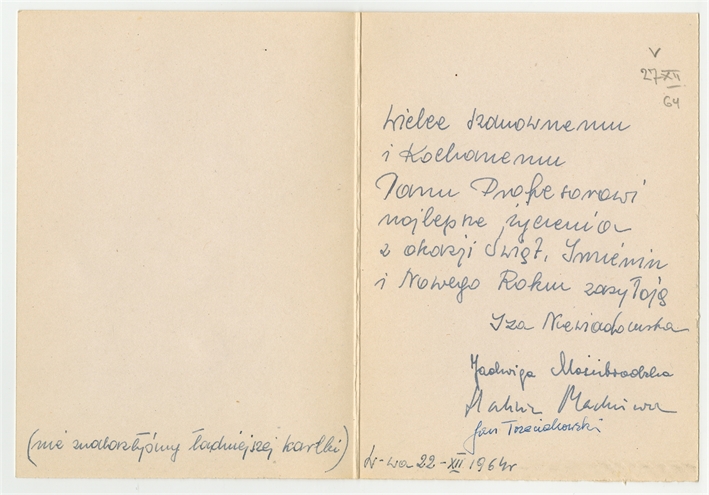 (nie znalazłyśmy ładniejszej kartki)
V
27-XII
64
Wielce Szanownemu
i Kochanemu
Panu Profesorowi
najlepsze życzenia
z okazji Świąt, Imienin
i Nowego Roku zasyłają
Iza Niewiadomska
Jadwiga
Jan Trzeciakowski
W-wa 22-XII 1964r